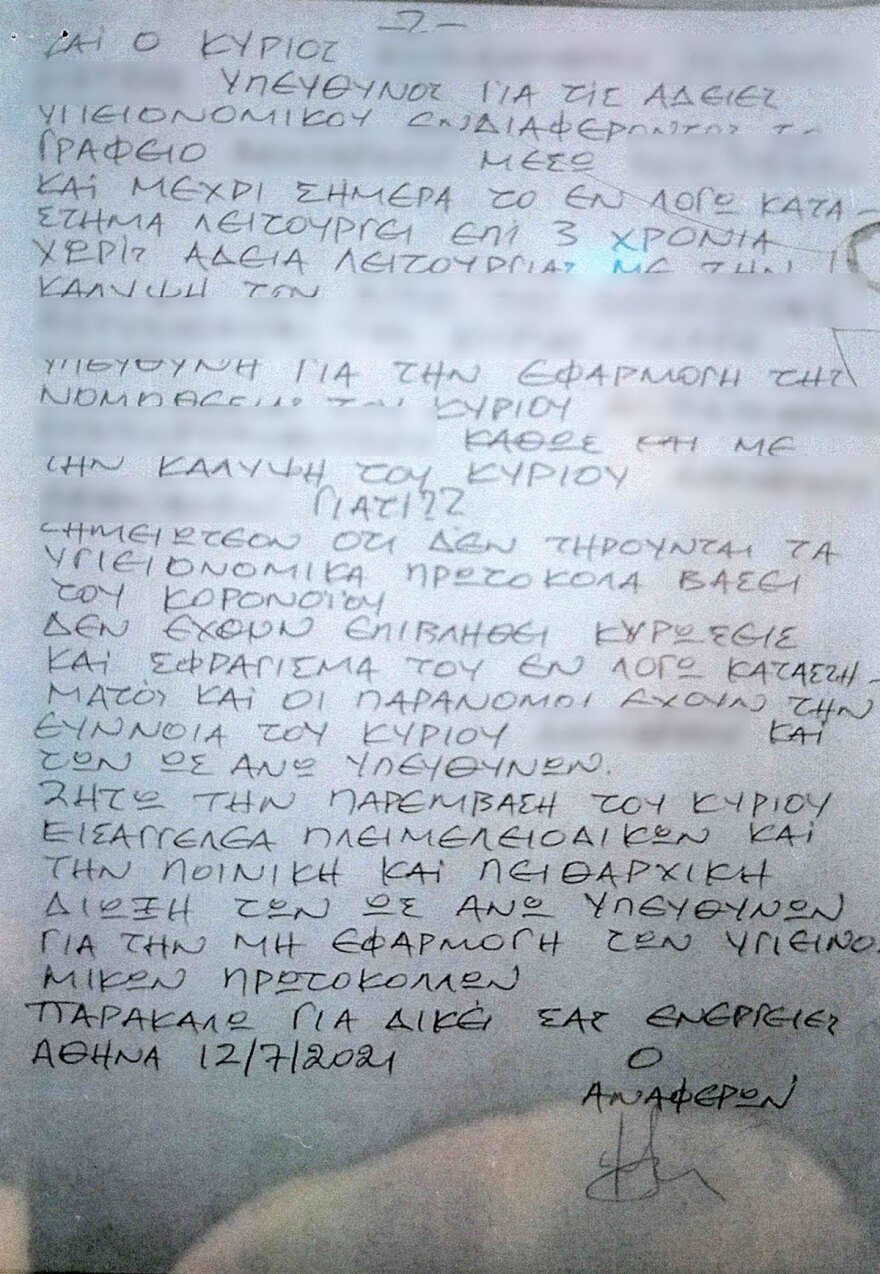 -2-
ΚΑΙ Ο ΚΥΡΙΟΣ
ΥΠΕΥΘΥΝΟΣ ΓΙΑ ΤΙΣ ΑΔΕΙΕΣ
ΥΓΙΕΙΟΝΟΜΙΚΟΥ ΕΝΔΙΑΦΕΡΟΝΤΟΣ ΤΟ
ΓΡΑΦΕΙΟ ΜΕΣΩ
ΚΑΙ ΜΕΧΡΙ ΣΗΜΕΡΑ ΤΟ ΕΝ ΛΟΓΩ ΚΑΤΑ-
ΣΤΗΜΑ ΛΕΙΤΟΥΡΓΕΙ ΕΠΙ 3 ΧΡΟΝΙΑ
ΧΩΡΙΣ ΑΔΕΙΑ ΛΕΙΤΟΥΡΓΙΑΣ ΜΕ ΤΗΝ
ΚΑΛΥΨΗ ΤΟΝ
ΥΠΕΥΘΥΝΗ ΓΙΑ ΤΗΝ ΕΦΑΡΜΟΓΗ ΤΗΣ
ΚΥΡΙΟΥ
ΚΑΘΩΣ ΚΑΙ ΜΕ
ΤΗΝ ΚΑΛΥΨΗ ΤΟΥ ΚΥΡΙΟΥ
ΓΙΑΤΙ??
ΣΗΜΕΙΩΤΕΟΝ ΟΤΙ ΔΕΝ ΤΗΡΟΥΝΤΑΙ ΤΑ
ΥΓΙΕΙΟΝΟΜΙΚΑ ΠΡΩΤΟΚΟΛΑ ΒΑΣΕΙ
ΤΟΥ ΚΟΡΟΝΟΪΟΥ
ΔΕΝ ΕΧΟΥΝ ΕΠΙΒΛΗΘΕΙ ΚΥΡΩΣΕΙΣ
ΚΑΙ ΣΦΡΑΓΙΣΜΑ ΤΟΥ ΕΝ ΛΟΓΩ ΚΑΤΑΣΤΗ-
ΜΑΤΟΣ ΚΑΙ ΟΙ ΠΑΡΑΝΟΜΟΙ ΕΧΟΥΝ ΤΗΝ
ΕΥΝΝΟΙΑ ΤΟΥ ΚΥΡΙΟΥ ΚΑΙ
ΤΩΝ ΩΣ ΑΝΩ ΥΠΕΥΘΥΝΩΝ.
ΖΗΤΩ ΤΗΝ ΠΑΡΕΜΒΑΣΗ ΤΟΥ ΚΥΡΙΟΥ
ΕΙΣΑΓΓΕΛΕΑ ΠΛΕΙΜΕΛΕΙΟΔΙΚΩΝ ΚΑΙ
ΤΗΝ ΠΟΙΝΙΚΗ ΚΑΙ ΠΕΙΘΑΡΧΙΚΗ
ΔΙΩΞΗ ΤΩΝ ΩΣ ΑΝΩ ΥΠΕΥΘΥΝΩΝ
ΓΙΑ ΤΗΝ ΜΗ ΕΦΑΡΜΟΓΗ ΤΩΝ ΥΓΙΕΙΝΟ
ΜΙΚΩΝ ΠΡΩΤΟΚΟΛΛΩΝ
ΠΑΡΑΚΑΛΩ ΓΙΑ ΔΙΚΕΣ ΣΑΣ ΕΝΕΡΓΕΙΕΣ
ΑΘΗΝΑ 12/7/2021 Ο
ΑΝΑΦΕΡΩΝ